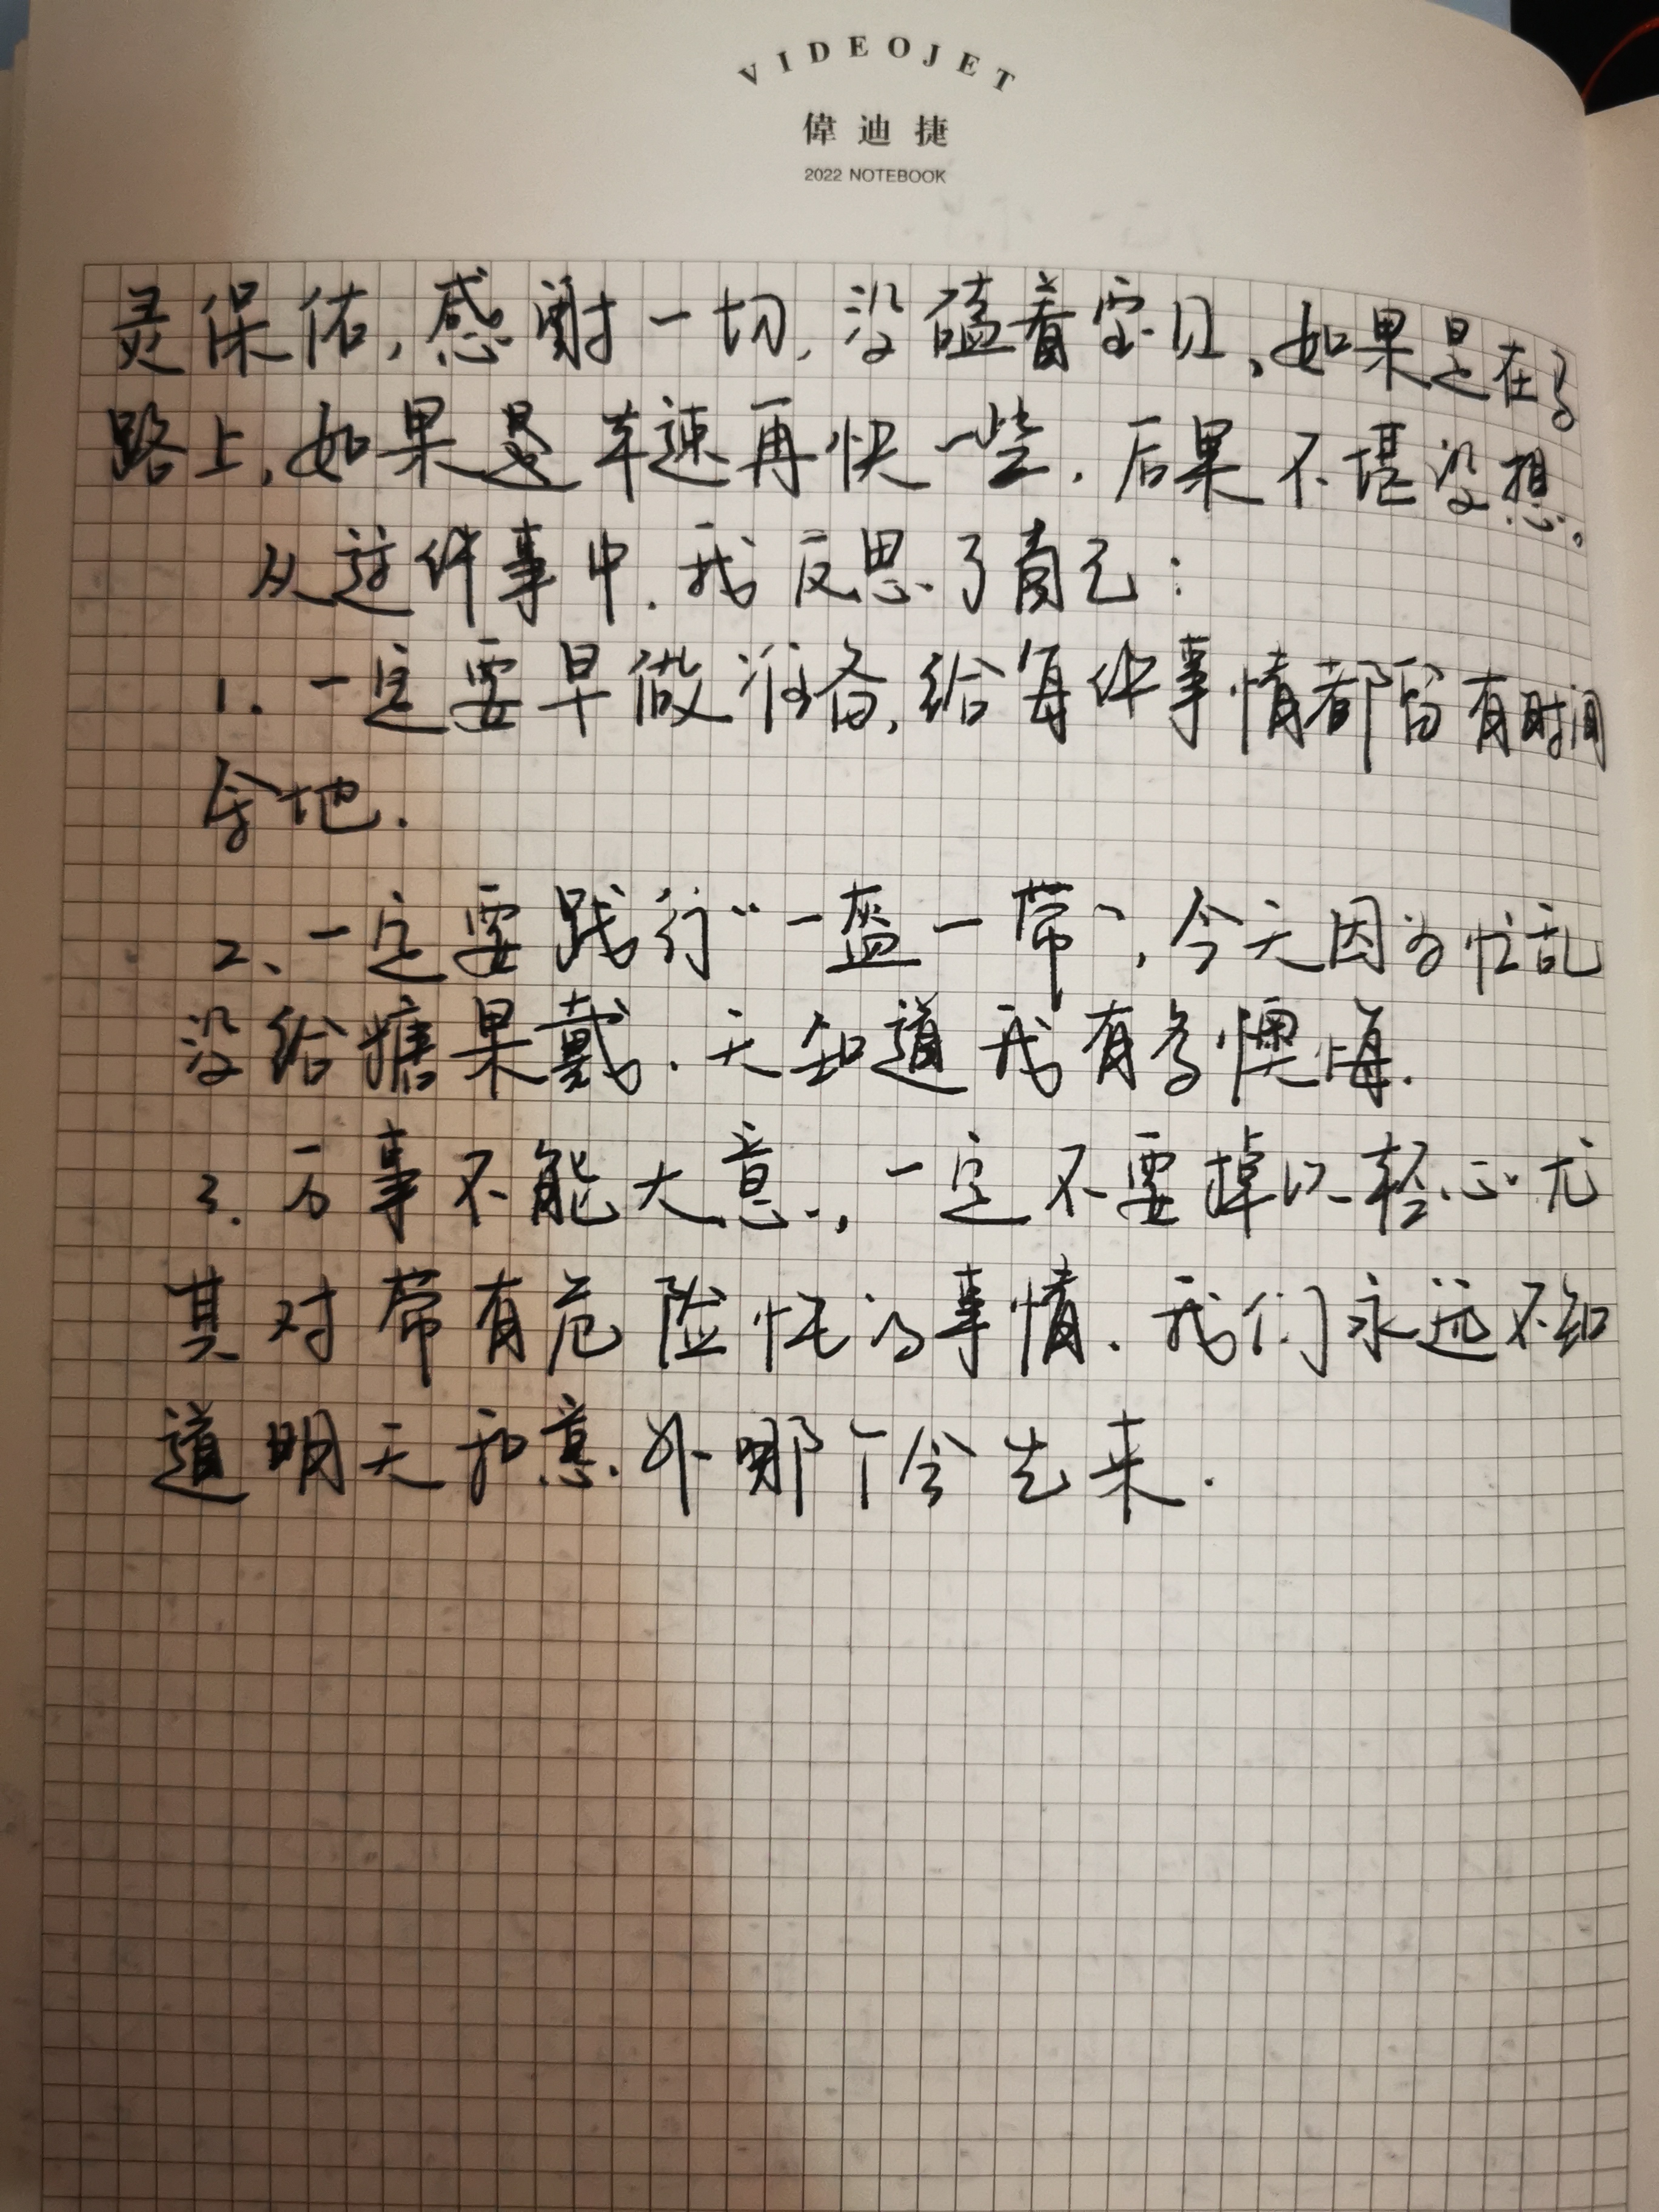 VIDEOJET
偉迪捷
2022 NOTEBOOK
灵保佑,感谢一切,没磕着宝贝,如果是在马
路上,如果是车速再快一些,后果不堪设想。
从这件事中,我反思了自己:
1. 一定要早做准备,给每件事情都留有时间
余地.
2、一定要践行“一盔一带”,今天因为忙乱
没给糖果戴,天知道我有多懊悔.
3. 万事不能大意,一定不要掉以轻心尤
其对带有危险性的事情,我们永远不知
道明天和意外哪个会先来.